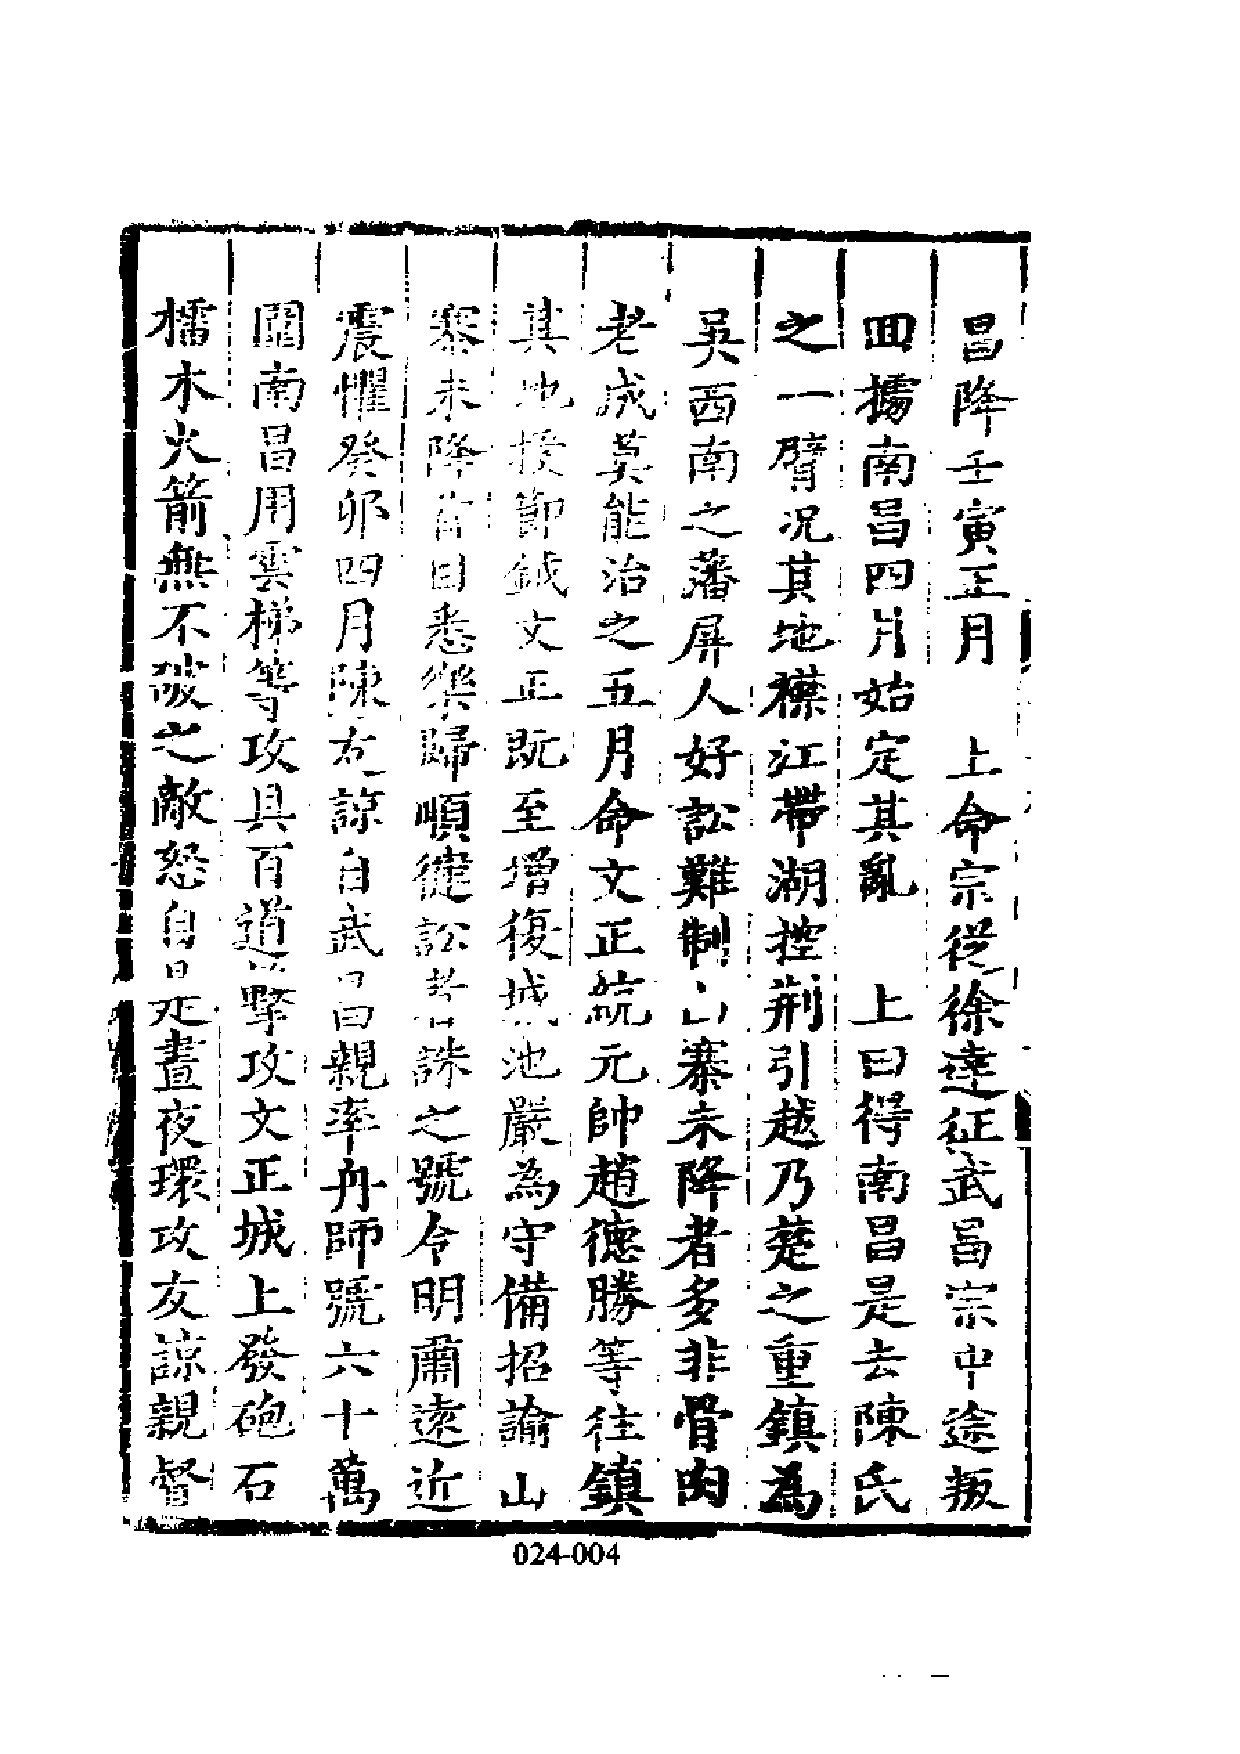 昌降壬寅正月　上命宗從徐達征武昌宗中途叛
回據南昌四月始定其亂　上曰得南昌是去陳氏
之一臂況其地襟江帶湖控荊引越乃楚之重鎮為
吳西南之藩屏人好訟難制山寨未降者多非骨肉
老成莫能治之五月命文正統元帥趙德勝等往鎮
其地授節鉞文正既至增復城池嚴為守備招諭山
寨未降首目悉樂歸順健訟者誅之號令明肅遠近
震懼癸卯四月陳友諒自武昌親率舟師號六十萬
圍南昌用雲梯等攻具百道攻文正城上發砲石
檑木火箭無不破之敵怒自是晝夜環攻友諒親督
024-004